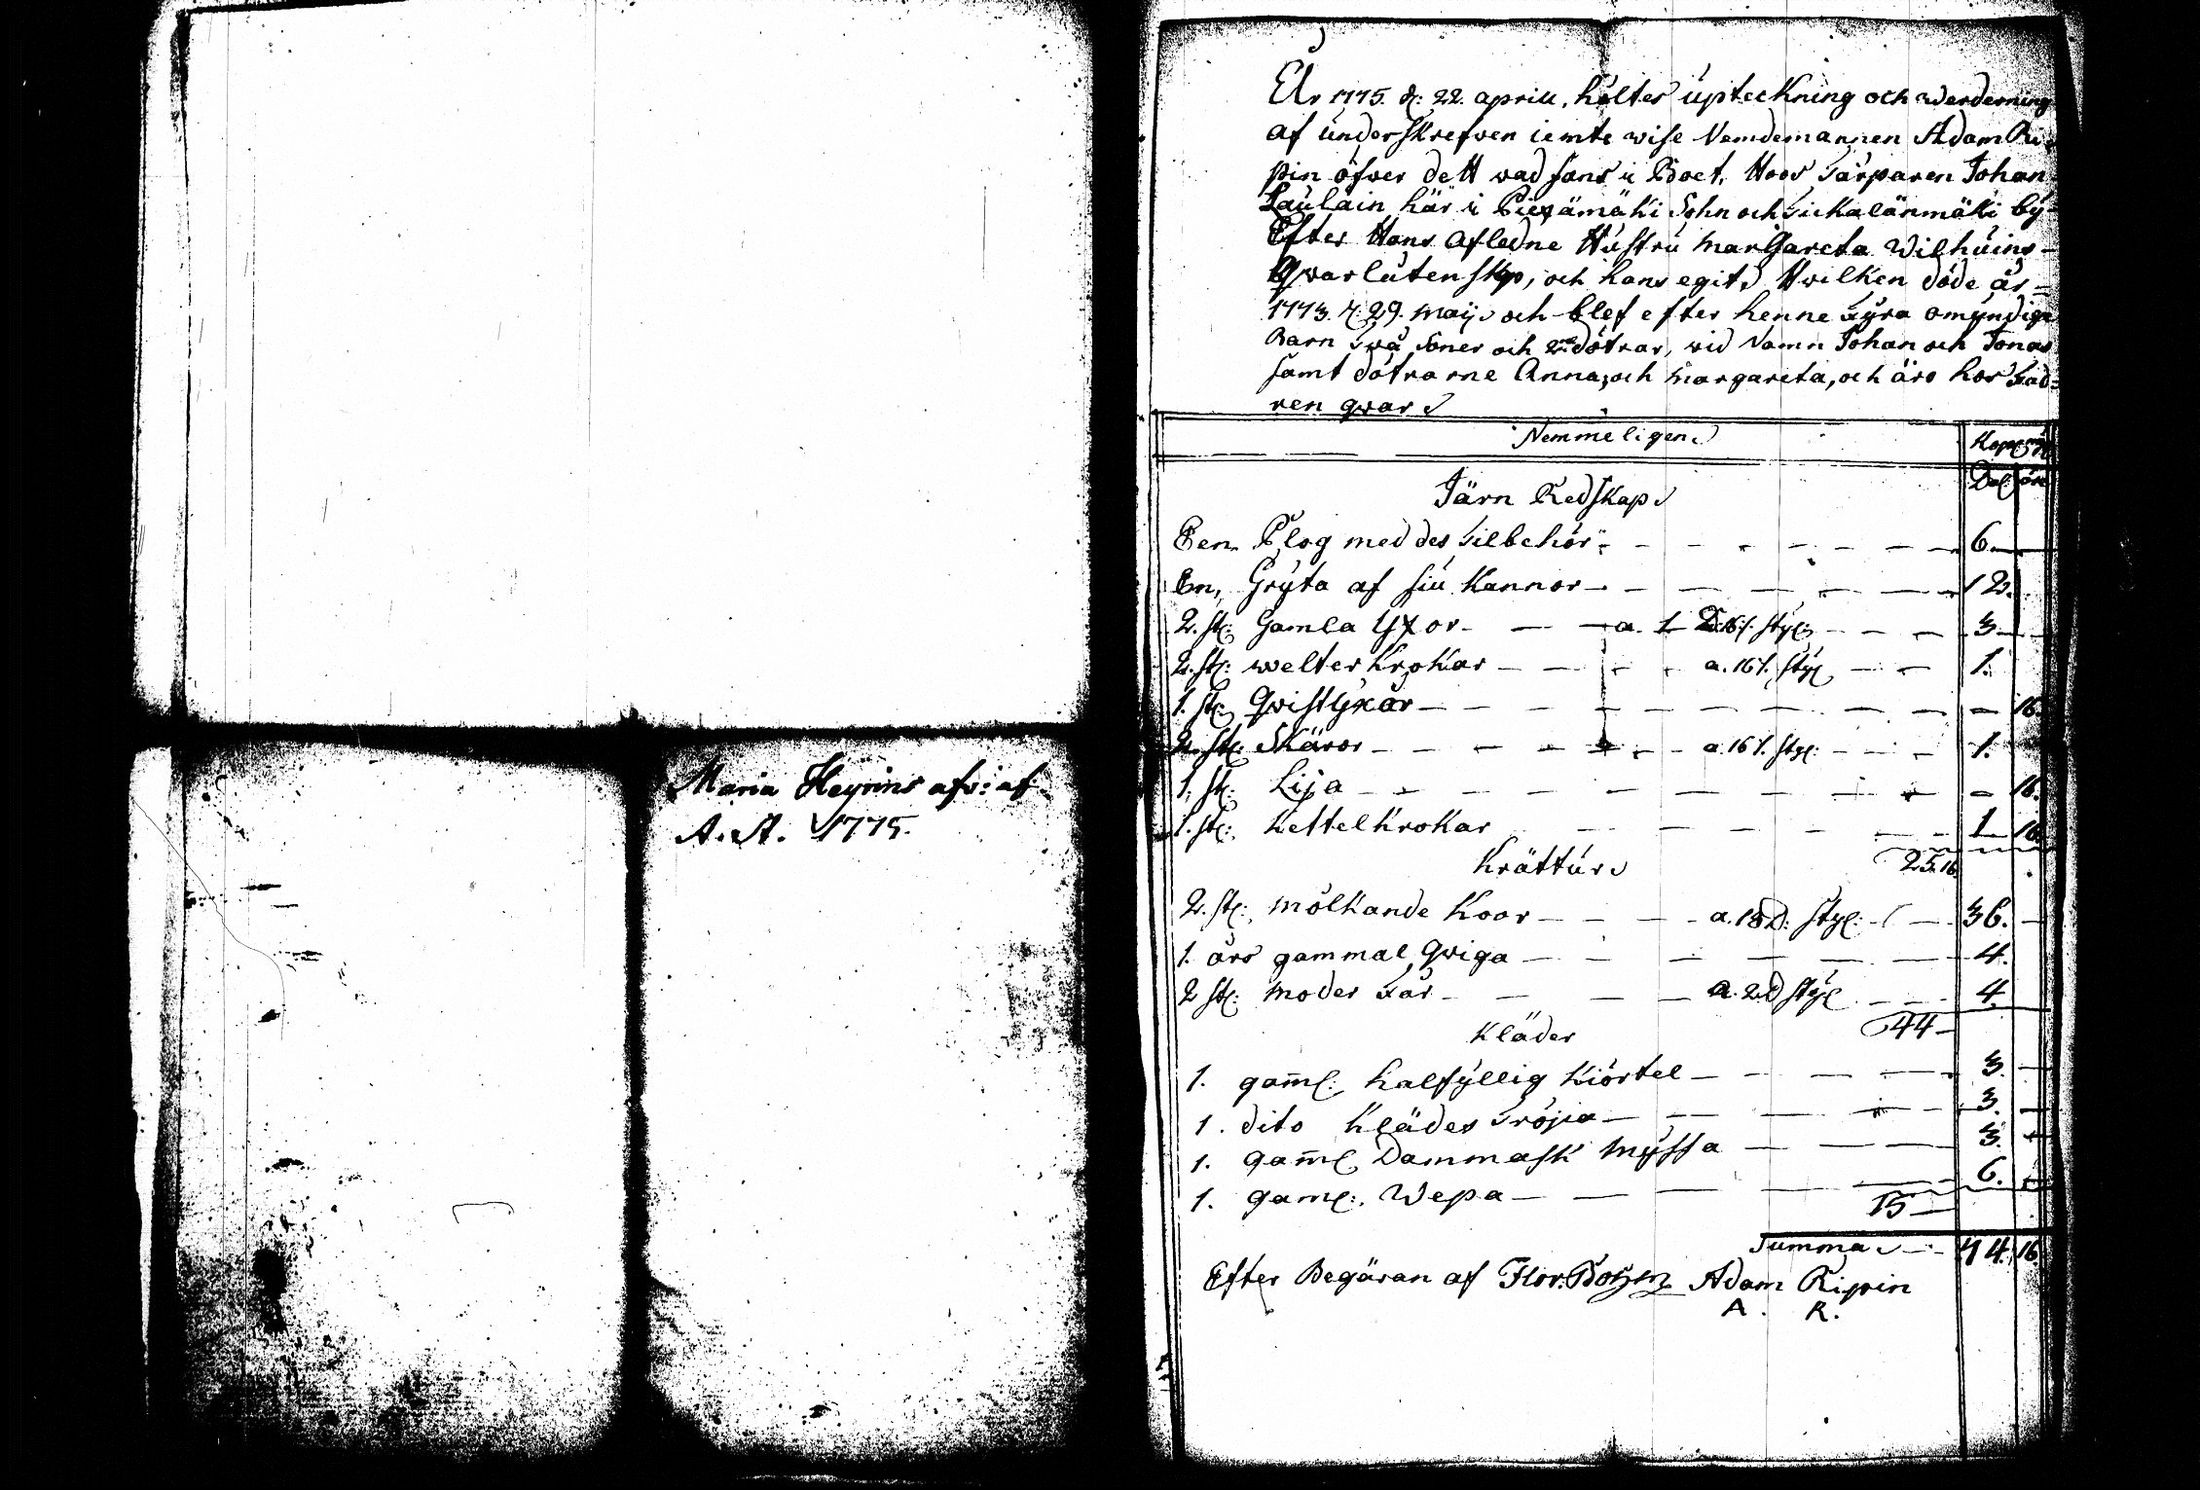 Maria Heyrins afv: af
A. St. 1775.
År 1775. d: 22. aprill, holtes úpteckning och werderning
af únderskrefwen iemte wise Nemdemannen Adam Ri-
pin öfwer dett wad fans i Boet, Hoos Tårparen Johan
Laúlain här i Sohn och by
Efter Hans Afledne Hústrú Margareta Wilhúins
Qwarlútenskp, och hans egit, Hwilken döde år
1773. d: 29. Maij och blef efter henne fyra omyndige
Barn twå söner och 2ne dötrar, vid Namn Johan och Jonas
samt dötrarne Anna, och Margareta, och äro hos fad-
ren qwar
Nemmeligen Kopp mt
Dal öre
Järn Redskap
Een Plog med des tilbehör - 6. -
En, Gryta af siú kannor - 12.
2. st: Gamla Yxor - a 1 D 16 /. styc: - 3 -
2. st: welter krokar - a. 16 /. styc - 1.
1. st: Qwistyxar - - 16.
2. st: Skäror - a. 16 /. styc: - 1.
1. st: Lija - - 16.
1. st: kettelkrokar - 1 16
Krättúr 25.16
2. st: mölkande koor - a. 18 D: styc: - 36. -
1. års gammal Qwiga - 4.
2 st: moder får - a. 2 D styc - 4
Kläder 44 -
1. gaml: halfyllig kiörtel - 3. -
1. dito klädes tröjia - 3. -
1. gaml Dammask Myssa - 3. -
1. gaml: Wepa - 6.
15 -
Summa - 74. 16
Efter Begäran af Flor. Adam Ripin
A. R.